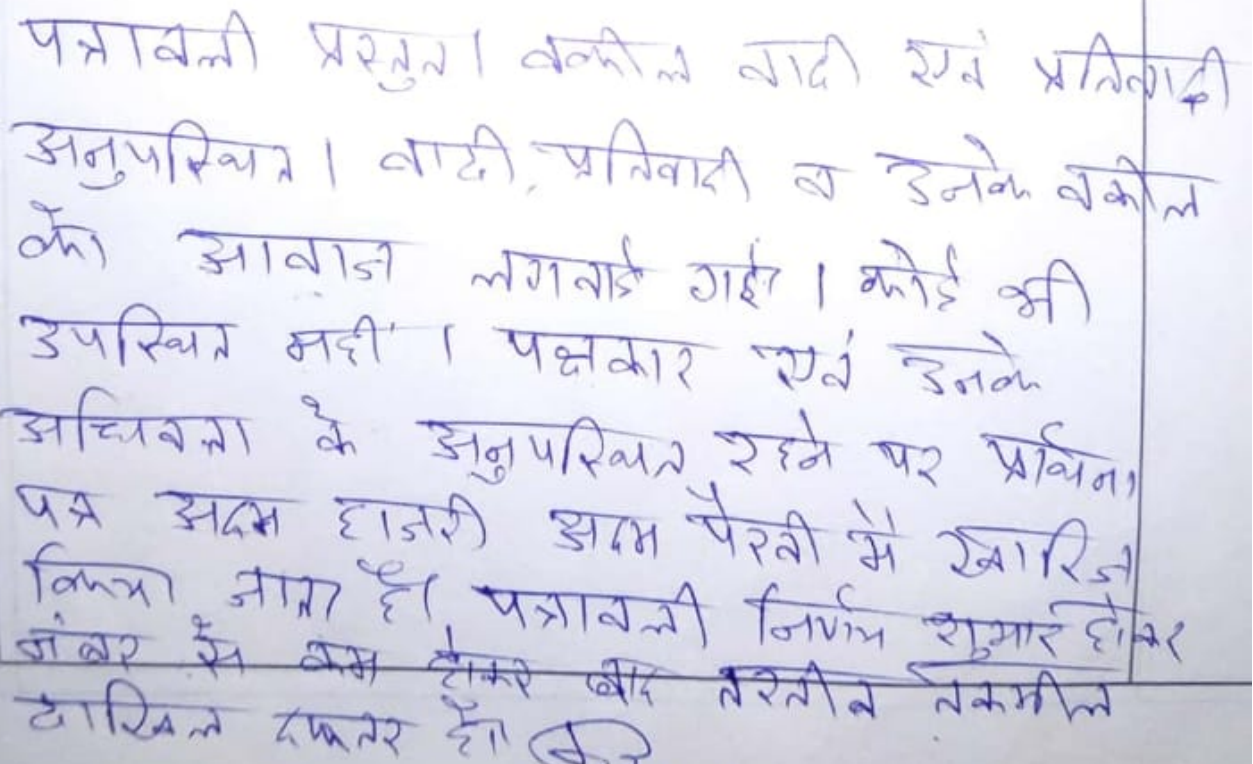 पत्रावली प्रस्तुत। वकील वादी एवं प्रतिवादी
अनुपस्थित। वादी, प्रतिवादी व उनके वकील
को आवाज लगवाई गई। कोई भी
उपस्थित नहीं। पक्षकार एवं उनके
अधिवक्ता के अनुपस्थित रहने पर प्रार्थना
पत्र अदम हाजरी अदम पैरवी मे खारिज
किया जाता है। पत्रावली निर्णय शुमार होकर
नंबर से कम होकर बाद तरतीब तकमील
दाखिल दफ्तर हो।